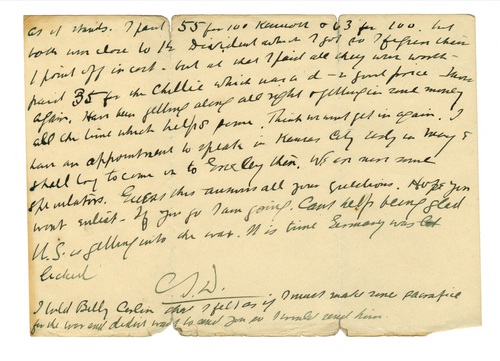 as it stands. I paid 55 for 100 Kennecott & 63 for 100. but
both were close to the Dividend which I got so I figure them
1 point off in cost - but at that I paid all they were worth -
paid 35 for the Chillie which was a d- good price
again. Have been getting along all right & getting in some money
all the time which helps some. Think we wont get in again. I
have an appointment to speak in Kansas City early in May &
shall try to come on to Greeley then. We are now some
speculators. Guess this answers all your questions. Hope you
wont enlist - If you go I am going. Cant help being glad
U.S. is getting into the war. It is time Germany was
licked
C.S.D.
I told Billy that I felt as if I must make some sacrifice
for the war and didn't want to send you so I would send him.